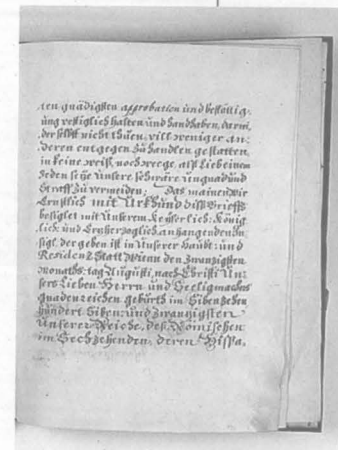 ten gnädigsten approbation und bestöttig-
ung vestiglich halten und handhaben, darwi,
der selbst nicht thuen, vill weniger an-
deren entgegen zü handlen gestatten,
in keine weiß, noch weege, alß Lieb einem
Jeden seÿe Unsere schwäre ungnad ünd
Straff zü vermeiden; Das mainen wir
Ernstlich mit Urkhünd diß Brieffs
besiglet mit Unserem Keÿserlich: König
lich: und Erzherzoglich anhangenden In,
sigl, der geben ist in Unserer Haubt: und
Residenz Statt Wienn den Zwanzigsten
Monaths-tag Augusti, nach Christi Un-
sers Lieben Herrn und Seeligmachers
gnadenreichen gebürth im Sibenzehen
hündert Siben: ünd Zwanzigsten
Unserer Reiche, deß Römischen
im Sechzehenden, deren Hispa,